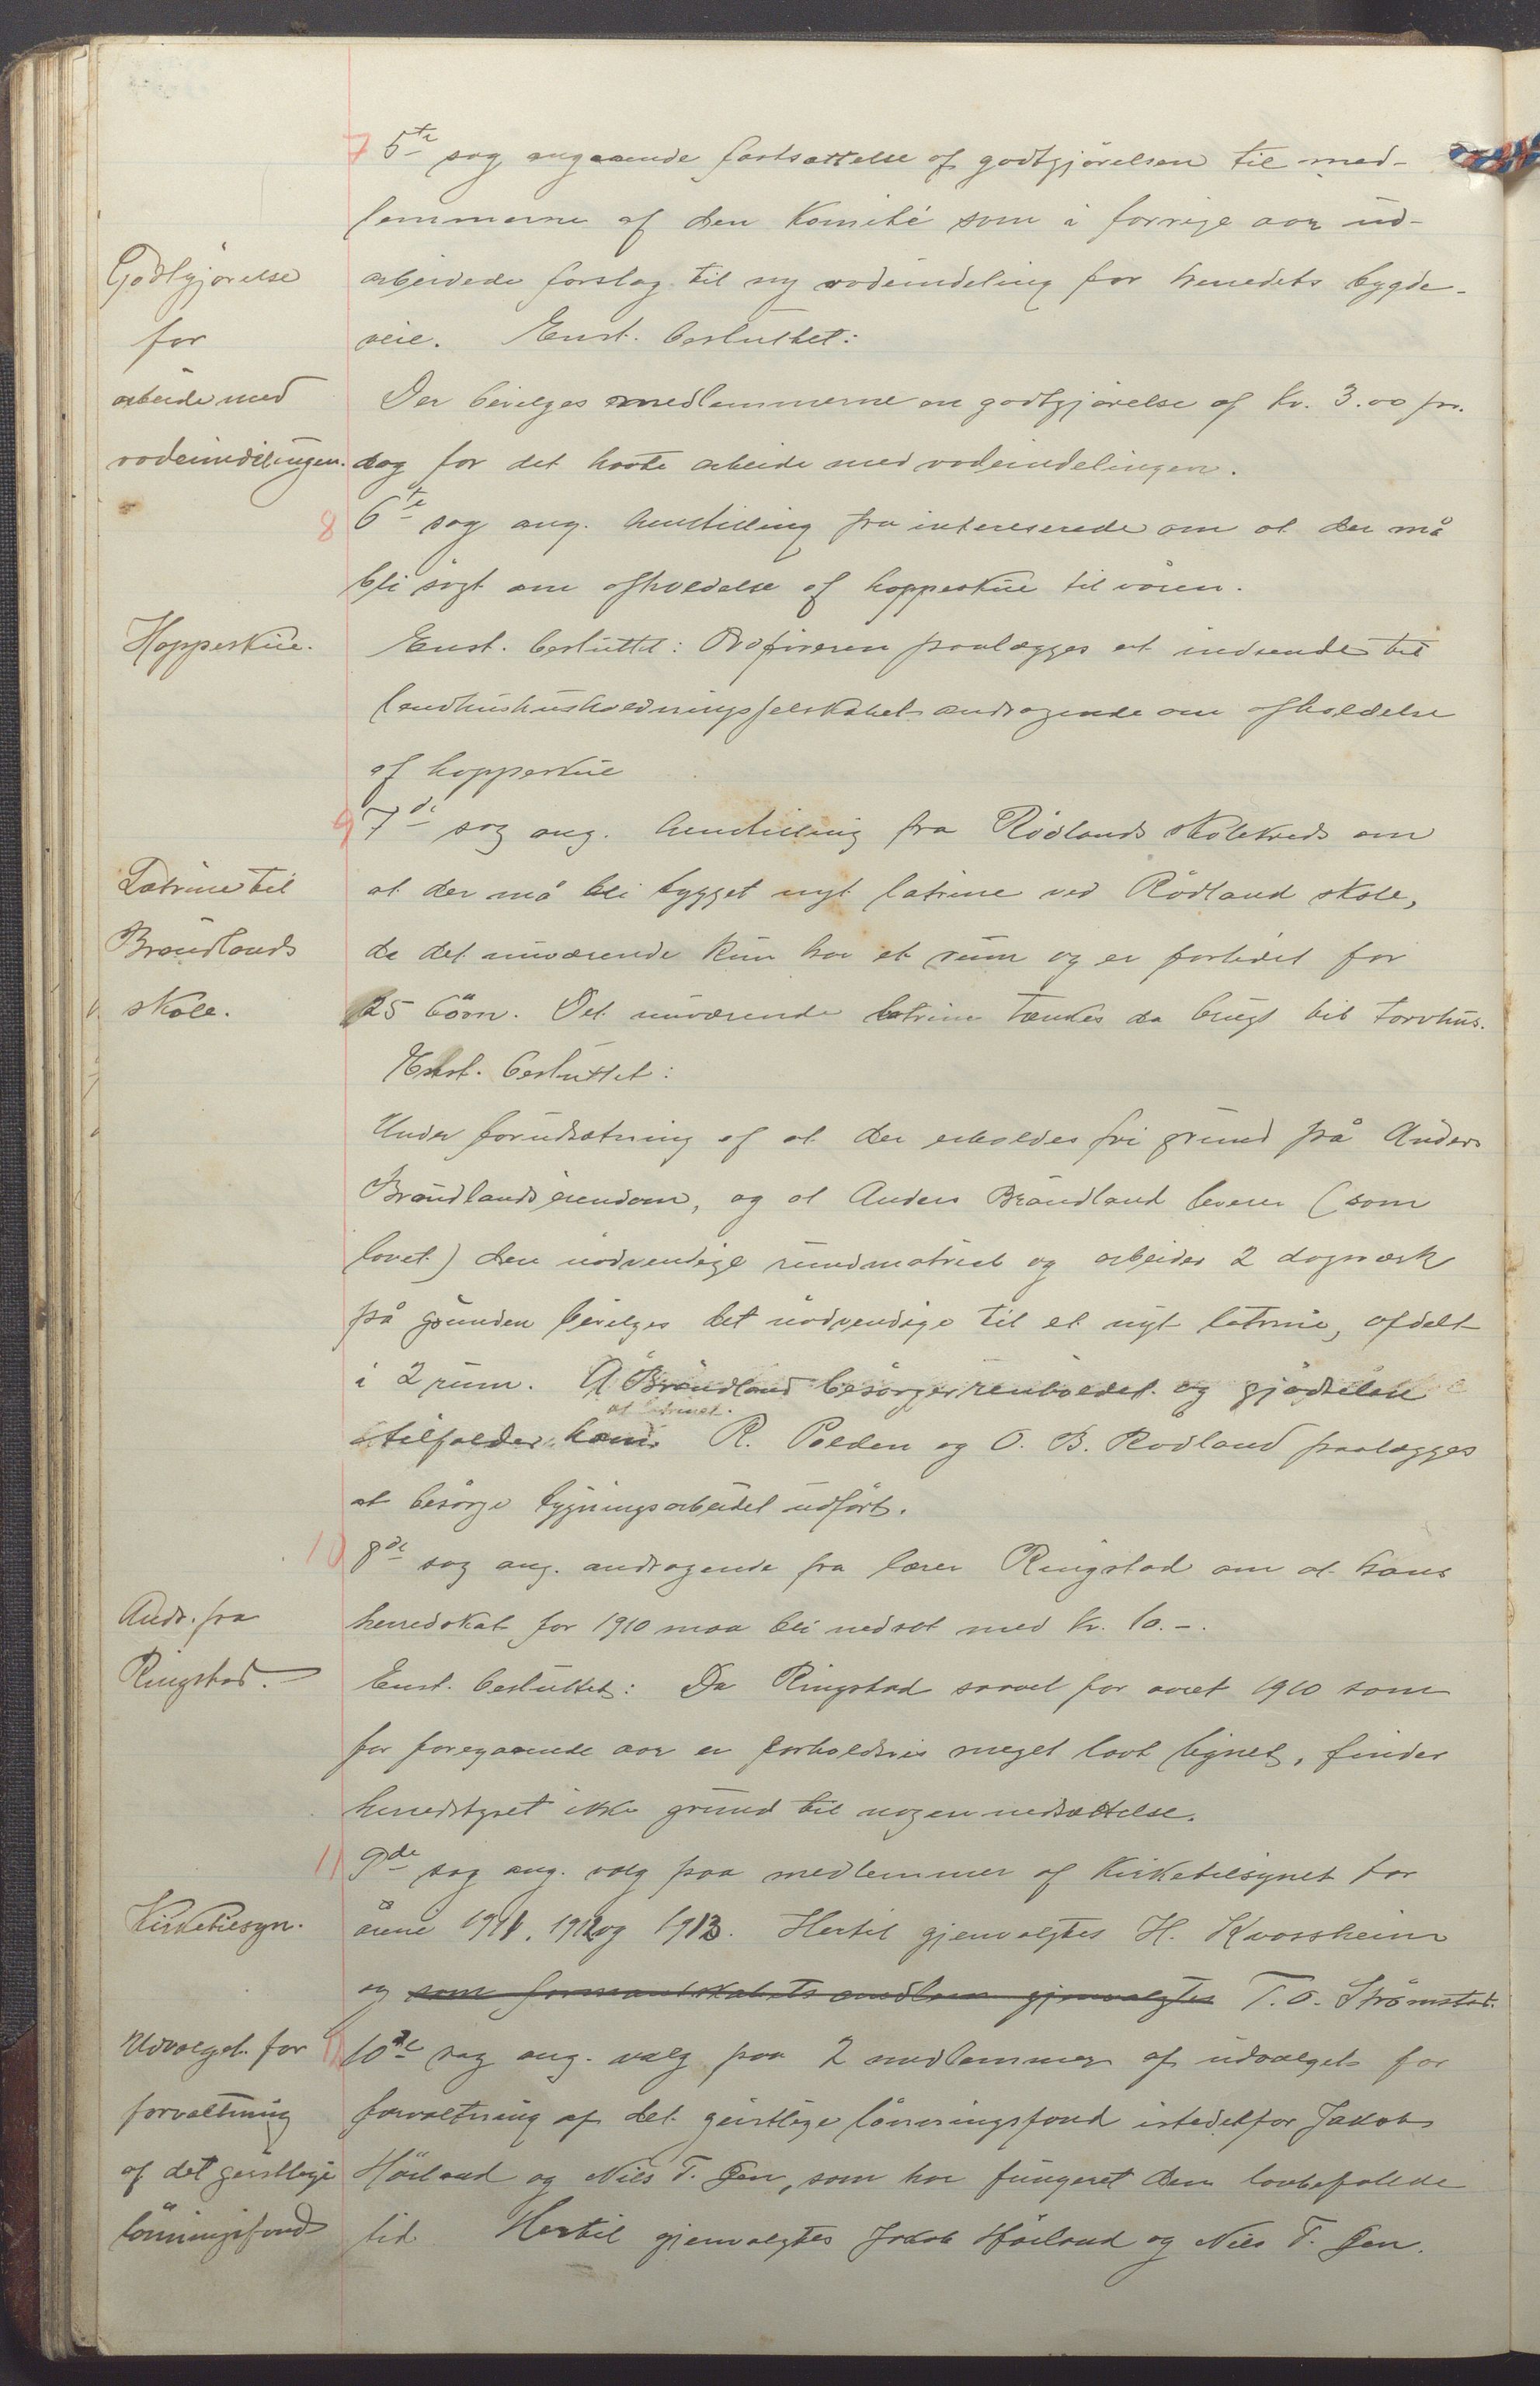 7 5te sag angaaende fastsættelse af godtgjørelsen til med-
lemmerne af den Komité som i forrige aar ud-
Godtgjørelse
arbeidede forslag til ny rodeinddeling for herredets bygde-
for
veie. Enst. besluttet:
arbeide med
Der bevilges medlemmerne en godtgjørelse af kr. 3.00 pr.
rodeinddelingen.
dag for det havte arbeide med rodeindelingen.
8 6te sag ang. henstilling fra intereserede om at der må
bli søgt om afholdelse af hoppeskue til våren.
Hoppeskue.
Enst. besluttet: Ordføreren paalægges at indsende til
landhushusholdningsselskabet andragende om afholdelse
af hoppeskue
9 7de sag ang. henstilling fra Rödlands skolekreds om
Latrine til
at der må bli bygget nyt latrine ved Rödland skole,
Brøndlands
da det nuværende kun har et rum og er forlidet for
skole.
25 börn. Det nuværende latrine tænkes da brugt til torvhus.
Enst. besluttet:
Under forudsætning af at der erholdes fri grund på Anders
Bröndlands eiendom, og at Anders Bröndland leverer (som
lovet) den nödvendige sandmatriel og arbeider 2 dagværk
på grunden bevilges det nödvendige til et nyt latrine, afdelt
i 2 rum. A Bröndland besörger renholdet og gjödselen
af latrinet.
tilfalder ham. R. Polden og O. B. Rodland paalægges
at besörge bygningsarbeidet udfört.
10 8de sag ang. andragende fra lærer Ringstad om at hans
Andr. fra
herredskat for 1910 maa bli nedsat med kr. 10.-.
Ringstad.
Enst. besluttet: Da Ringstad saavel for aaret 1910 som
for foregaaende aar er forholdsvis meget lavt lignet, finder
herredstyret ikke grund til nogen nedsættelse.
11 9de sag ang. valg paa medlemmer af Kirketilsynet for
Kirketilsyn.
årene 1911, 1912 og 1913. Hertil gjenvalgtes H. Kvassheim
og som formandskabets medlem gjenvalgtes T. O. Strömstad.
Udvalget for
12 10de sag ang. valg paa 2 medlemmer af udvalget for
forvaltning
forvaltning af det geistlige lönningsfond istedetfor Jakob
af det geistlige
Höiland og Nils T. Øen, som har fungeret den lovbefalede
lönningsfond
tid. Hertil gjenvalgtes Jakob Höiland og Nils T. Øen.